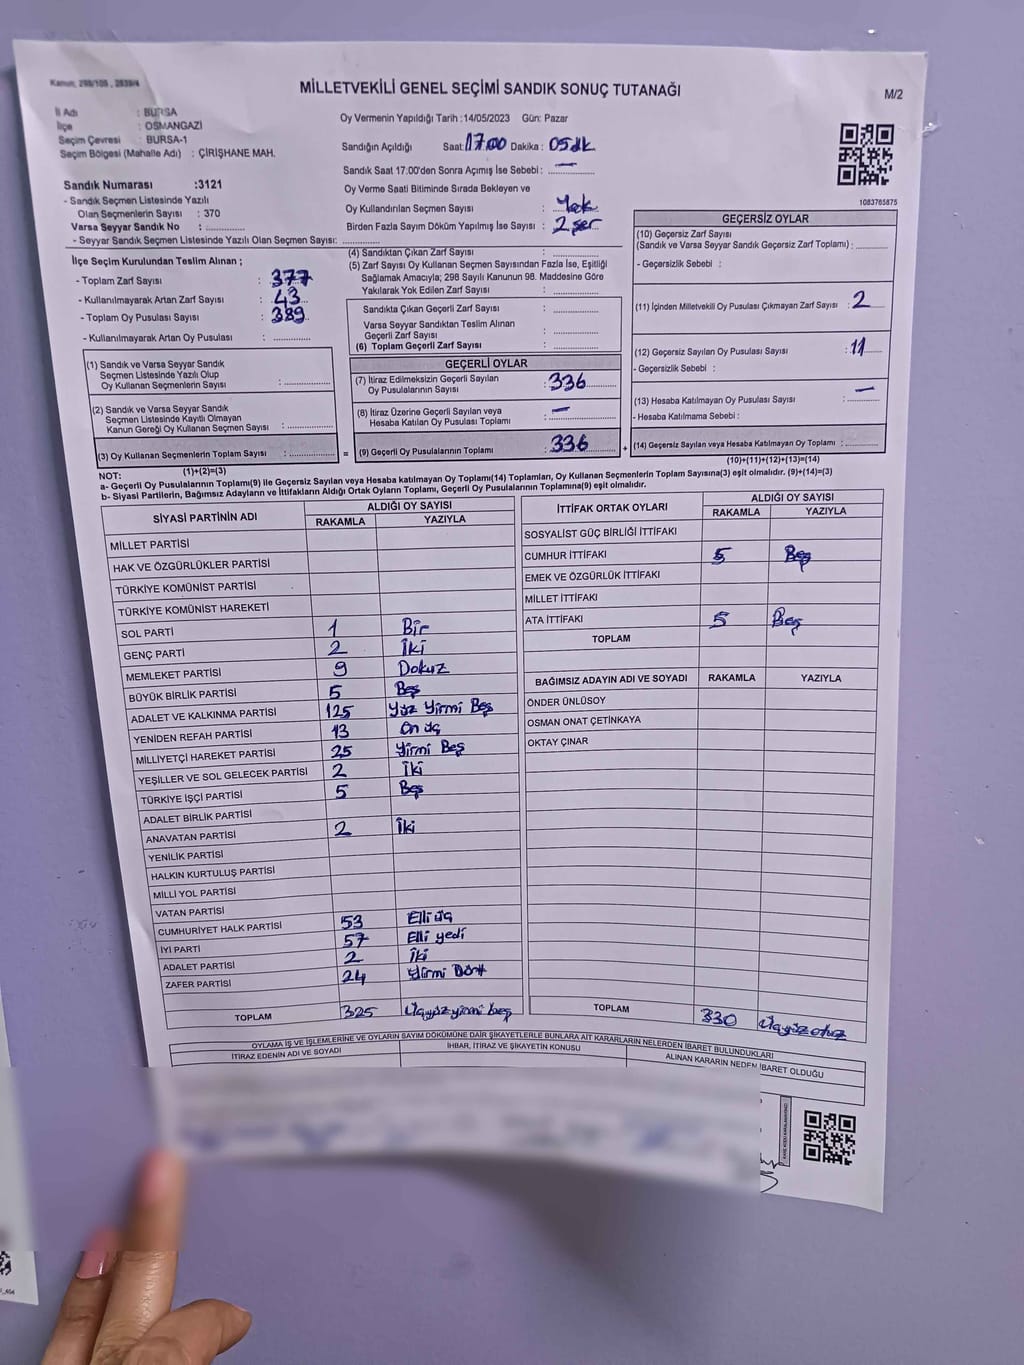 Kanun: 298/105 , 2839/4
MİLLETVEKİLİ GENEL SEÇİMİ SANDIK SONUÇ TUTANAĞI
M/2
İl Adı : BURSA
İlçe : OSMANGAZİ
Seçim Çevresi : BURSA-1
Seçim Bölgesi (Mahalle Adı) : ÇİRİŞHANE MAH.
Oy Vermenin Yapıldığı Tarih :14/05/2023 Gün: Pazar
Sandığın Açıldığı Saat: 17.00 Dakika : 05 dk
Sandık Saat 17:00'den Sonra Açımış İse Sebebi : —
Oy Verme Saati Bitiminde Sırada Bekleyen ve
Oy Kullandırılan Seçmen Sayısı : Yok
Birden Fazla Sayım Döküm Yapılmış İse Sayısı : 2 şer
1083765875
Sandık Numarası :3121
- Sandık Seçmen Listesinde Yazılı
Olan Seçmenlerin Sayısı : 370
Varsa Seyyar Sandık No :
- Seyyar Sandık Seçmen Listesinde Yazılı Olan Seçmen Sayısı:
İlçe Seçim Kurulundan Teslim Alınan ;
- Toplam Zarf Sayısı : 377
- Kullanılmayarak Artan Zarf Sayısı : 43
- Toplam Oy Pusulası Sayısı : 389
- Kullanılmayarak Artan Oy Pusulası :
(1) Sandık ve Varsa Seyyar Sandık
Seçmen Listesinde Yazılı Olup
Oy Kullanan Seçmenlerin Sayısı :
(2) Sandık ve Varsa Seyyar Sandık
Seçmen Listesinde Kayıtlı Olmayan
Kanun Gereği Oy Kullanan Seçmen Sayısı :
(3) Oy Kullanan Seçmenlerin Toplam Sayısı :
(1)+(2)=(3)
(4) Sandıktan Çıkan Zarf Sayısı :
(5) Zarf Sayısı Oy Kullanan Seçmen Sayısından Fazla İse, Eşitliği
Sağlamak Amacıyla; 298 Sayılı Kanunun 98. Maddesine Göre
Yakılarak Yok Edilen Zarf Sayısı :
Sandıkta Çıkan Geçerli Zarf Sayısı :
Varsa Seyyar Sandıktan Teslim Alınan
Geçerli Zarf Sayısı :
(6) Toplam Geçerli Zarf Sayısı :
GEÇERLİ OYLAR
(7) İtiraz Edilmeksizin Geçerli Sayılan
Oy Pusulalarının Sayısı : 336
(8) İtiraz Üzerine Geçerli Sayılan veya
Hesaba Katılan Oy Pusulası Toplamı : —
= (9) Geçerli Oy Pusulalarının Toplamı : 336 +
GEÇERSİZ OYLAR
(10) Geçersiz Zarf Sayısı
(Sandık ve Varsa Seyyar Sandık Geçersiz Zarf Toplamı) :
- Geçersizlik Sebebi :
(11) İçinden Milletvekili Oy Pusulası Çıkmayan Zarf Sayısı : 2
(12) Geçersiz Sayılan Oy Pusulası Sayısı : 11
- Geçersizlik Sebebi :
(13) Hesaba Katılmayan Oy Pusulası Sayısı : —
- Hesaba Katılmama Sebebi :
(14) Geçersiz Sayılan veya Hesaba Katılmayan Oy Toplamı :
(10)+(11)+(12)+(13)=(14)
NOT:
a- Geçerli Oy Pusulalarının Toplamı(9) ile Geçersiz Sayılan veya Hesaba katılmayan Oy Toplamı(14) Toplamları, Oy Kullanan Seçmenlerin Toplam Sayısına(3) eşit olmalıdır. (9)+(14)=(3)
b- Siyasi Partilerin, Bağımsız Adayların ve İttifakların Aldığı Ortak Oyların Toplamı, Geçerli Oy Pusulalarının Toplamına(9) eşit olmalıdır.
SİYASİ PARTİNİN ADI ALDIĞI OY SAYISI
RAKAMLA YAZIYLA
MİLLET PARTİSİ
HAK VE ÖZGÜRLÜKLER PARTİSİ
TÜRKİYE KOMÜNİST PARTİSİ
TÜRKİYE KOMÜNİST HAREKETİ
SOL PARTİ 1 Bir
GENÇ PARTİ 2 İki
MEMLEKET PARTİSİ 9 Dokuz
BÜYÜK BİRLİK PARTİSİ 5 Beş
ADALET VE KALKINMA PARTİSİ 125 Yüz Yirmi Beş
YENİDEN REFAH PARTİSİ 13 On üç
MİLLİYETÇİ HAREKET PARTİSİ 25 Yirmi Beş
YEŞİLLER VE SOL GELECEK PARTİSİ 2 İki
TÜRKİYE İŞÇİ PARTİSİ 5 Beş
ADALET BİRLİK PARTİSİ
ANAVATAN PARTİSİ 2 İki
YENİLİK PARTİSİ
HALKIN KURTULUŞ PARTİSİ
MİLLİ YOL PARTİSİ
VATAN PARTİSİ
CUMHURİYET HALK PARTİSİ 53 Elli üç
İYİ PARTİ 57 Elli yedi
ADALET PARTİSİ 2 İki
ZAFER PARTİSİ 24 Yirmi Dört
TOPLAM 325 Üçyüzyirmi beş
İTTİFAK ORTAK OYLARI ALDIĞI OY SAYISI
RAKAMLA YAZIYLA
SOSYALİST GÜÇ BİRLİĞİ İTTİFAKI
CUMHUR İTTİFAKI 5 Beş
EMEK VE ÖZGÜRLÜK İTTİFAKI
MİLLET İTTİFAKI
ATA İTTİFAKI 5 Beş
TOPLAM
BAĞIMSIZ ADAYIN ADI VE SOYADI RAKAMLA YAZIYLA
ÖNDER ÜNLÜSOY
OSMAN ONAT ÇETİNKAYA
OKTAY ÇINAR
TOPLAM 330 Üçyüzotuz
OYLAMA İŞ VE İŞLEMLERİNE VE OYLARIN SAYIM DÖKÜMÜNE DAİR ŞİKAYETLERLE BUNLARA AİT KARARLARIN NELERDEN İBARET BULUNDUKLARI
İTİRAZ EDENİN ADI VE SOYADI İHBAR, İTİRAZ VE ŞİKAYETİN KONUSU ALINAN KARARIN NEDEN İBARET OLDUĞU